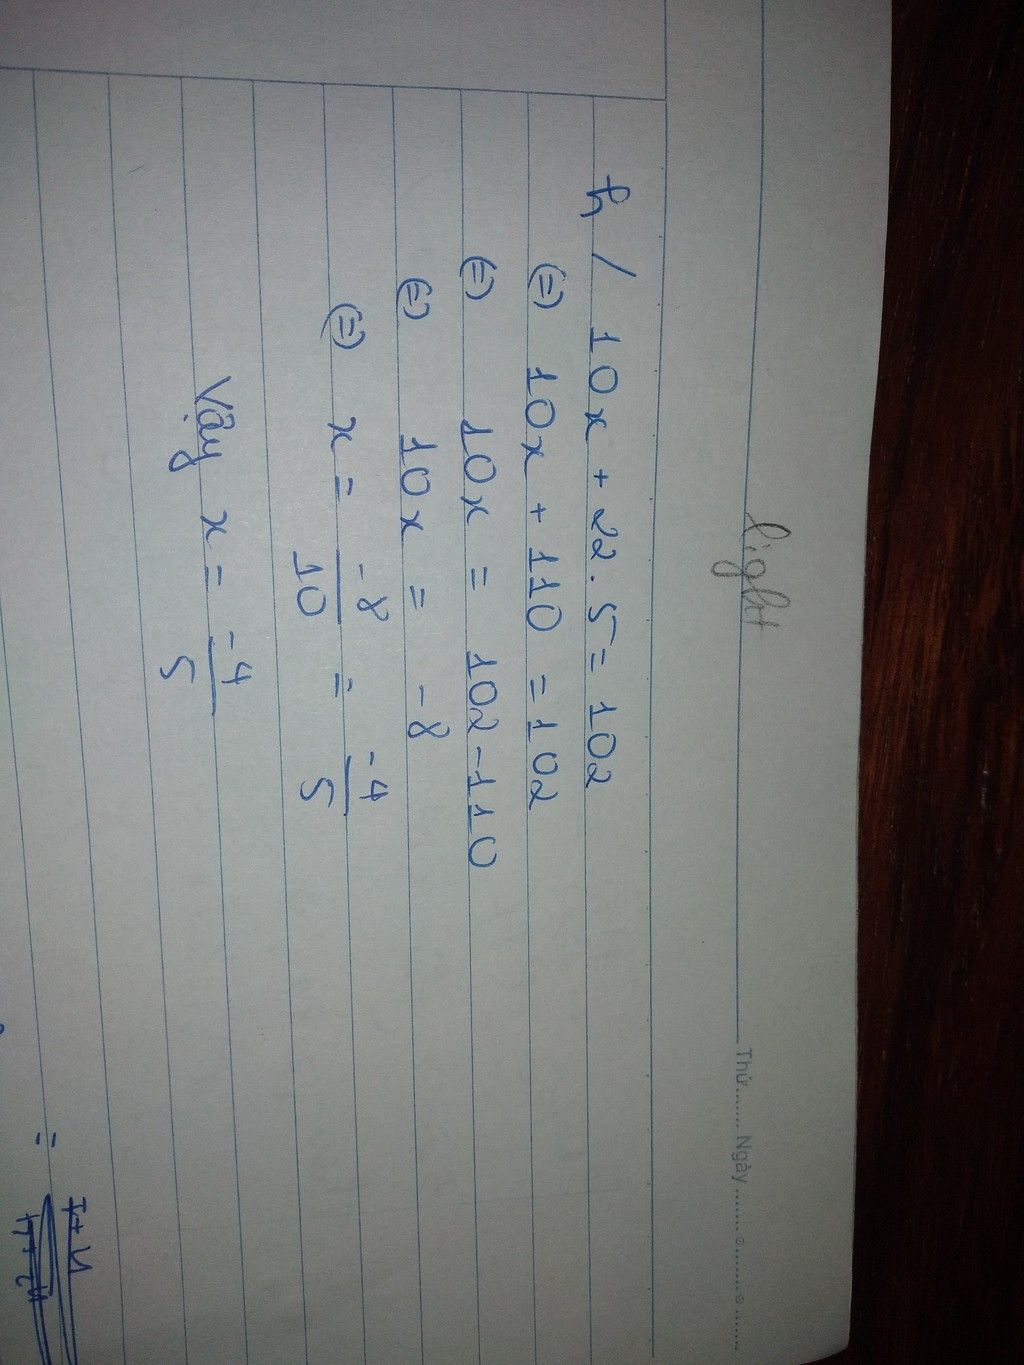 light
Thứ........ Ngày ........ o ........ o ........
h / 10x + 22 . 5 = 102
(=) 10x + 110 = 102
(=) 10x = 102 - 110
(=) 10x = -8
(=) x = -8/10 = -4/5
Vậy x = -4/5
=